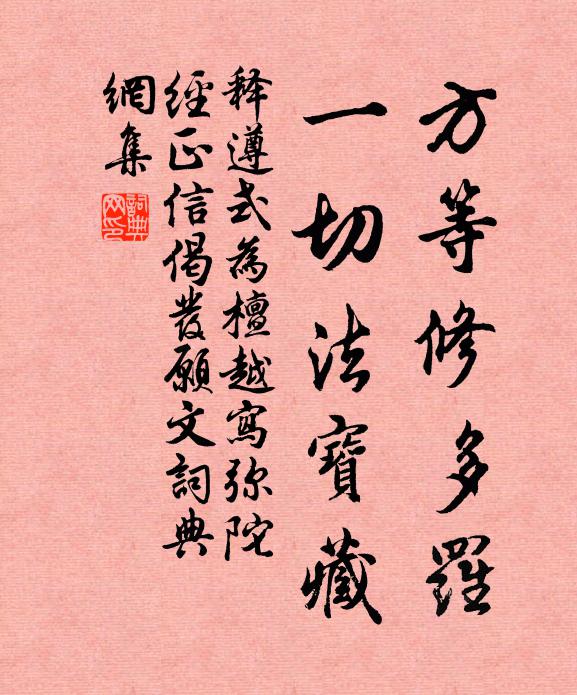 方等修多羅
一切法寶藏
释遵式為檀越寫弥陀
經正信偈發願文詞典
網集
詞典
网印